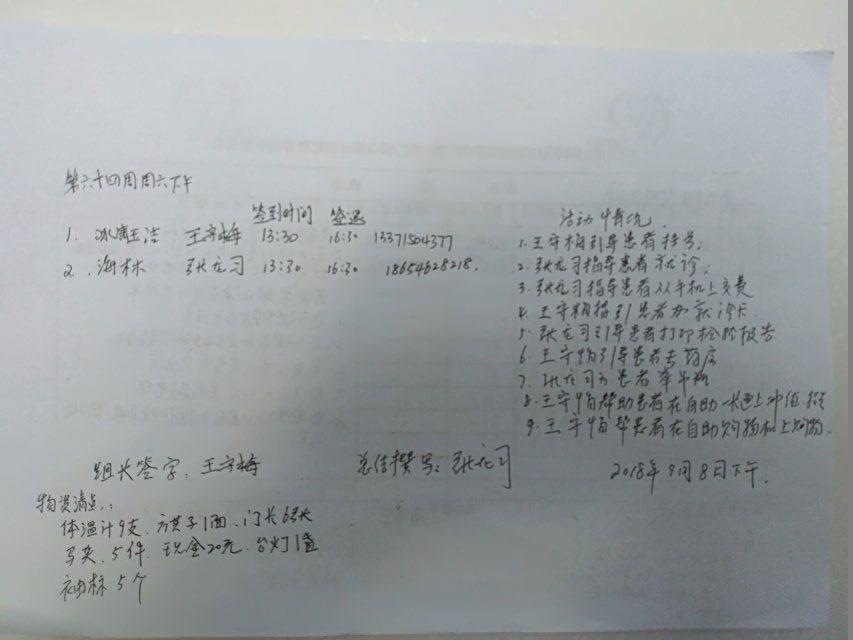 第六十四周周六下午
签到时间 签退
1. 冰清玉洁 王守梅 13:30 16:30 13371504377
2. 海林 张龙习 13:30 16:30 18654628218.
活动情况
1. 王守梅引导患者挂号;
2. 张龙习指导患者就诊;
3. 张龙习指导患者从手机上交费
4. 王守梅指引患者办就诊卡
5. 张龙习引导患者打印检验报告
6. 王守梅引导患者去药店
7. 张龙习为患者拿平板
8. 王守梅帮助患者在自助 上冲值
9. 王守梅帮患者在自助购物机上购物.
组长签字: 王守梅 总结撰写: 张龙习 2018年9月8日下午.
物资清点:
体温计9支. 旗子1面. 门长6张
马夹. 5件. 现金20元. 台灯1盏
袖标5个